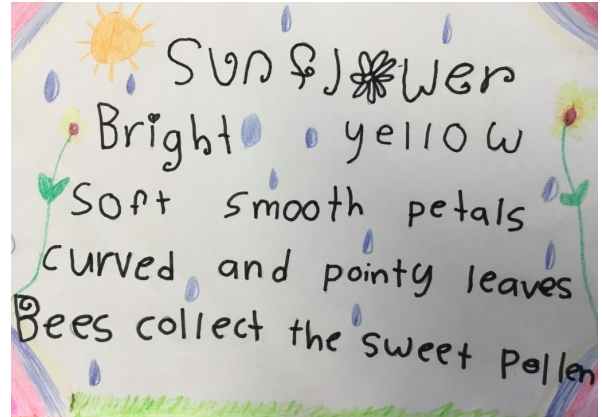 Sunflower
Bright yellow
Soft smooth petals
curved and pointy leaves
Bees collect the sweet Pollen